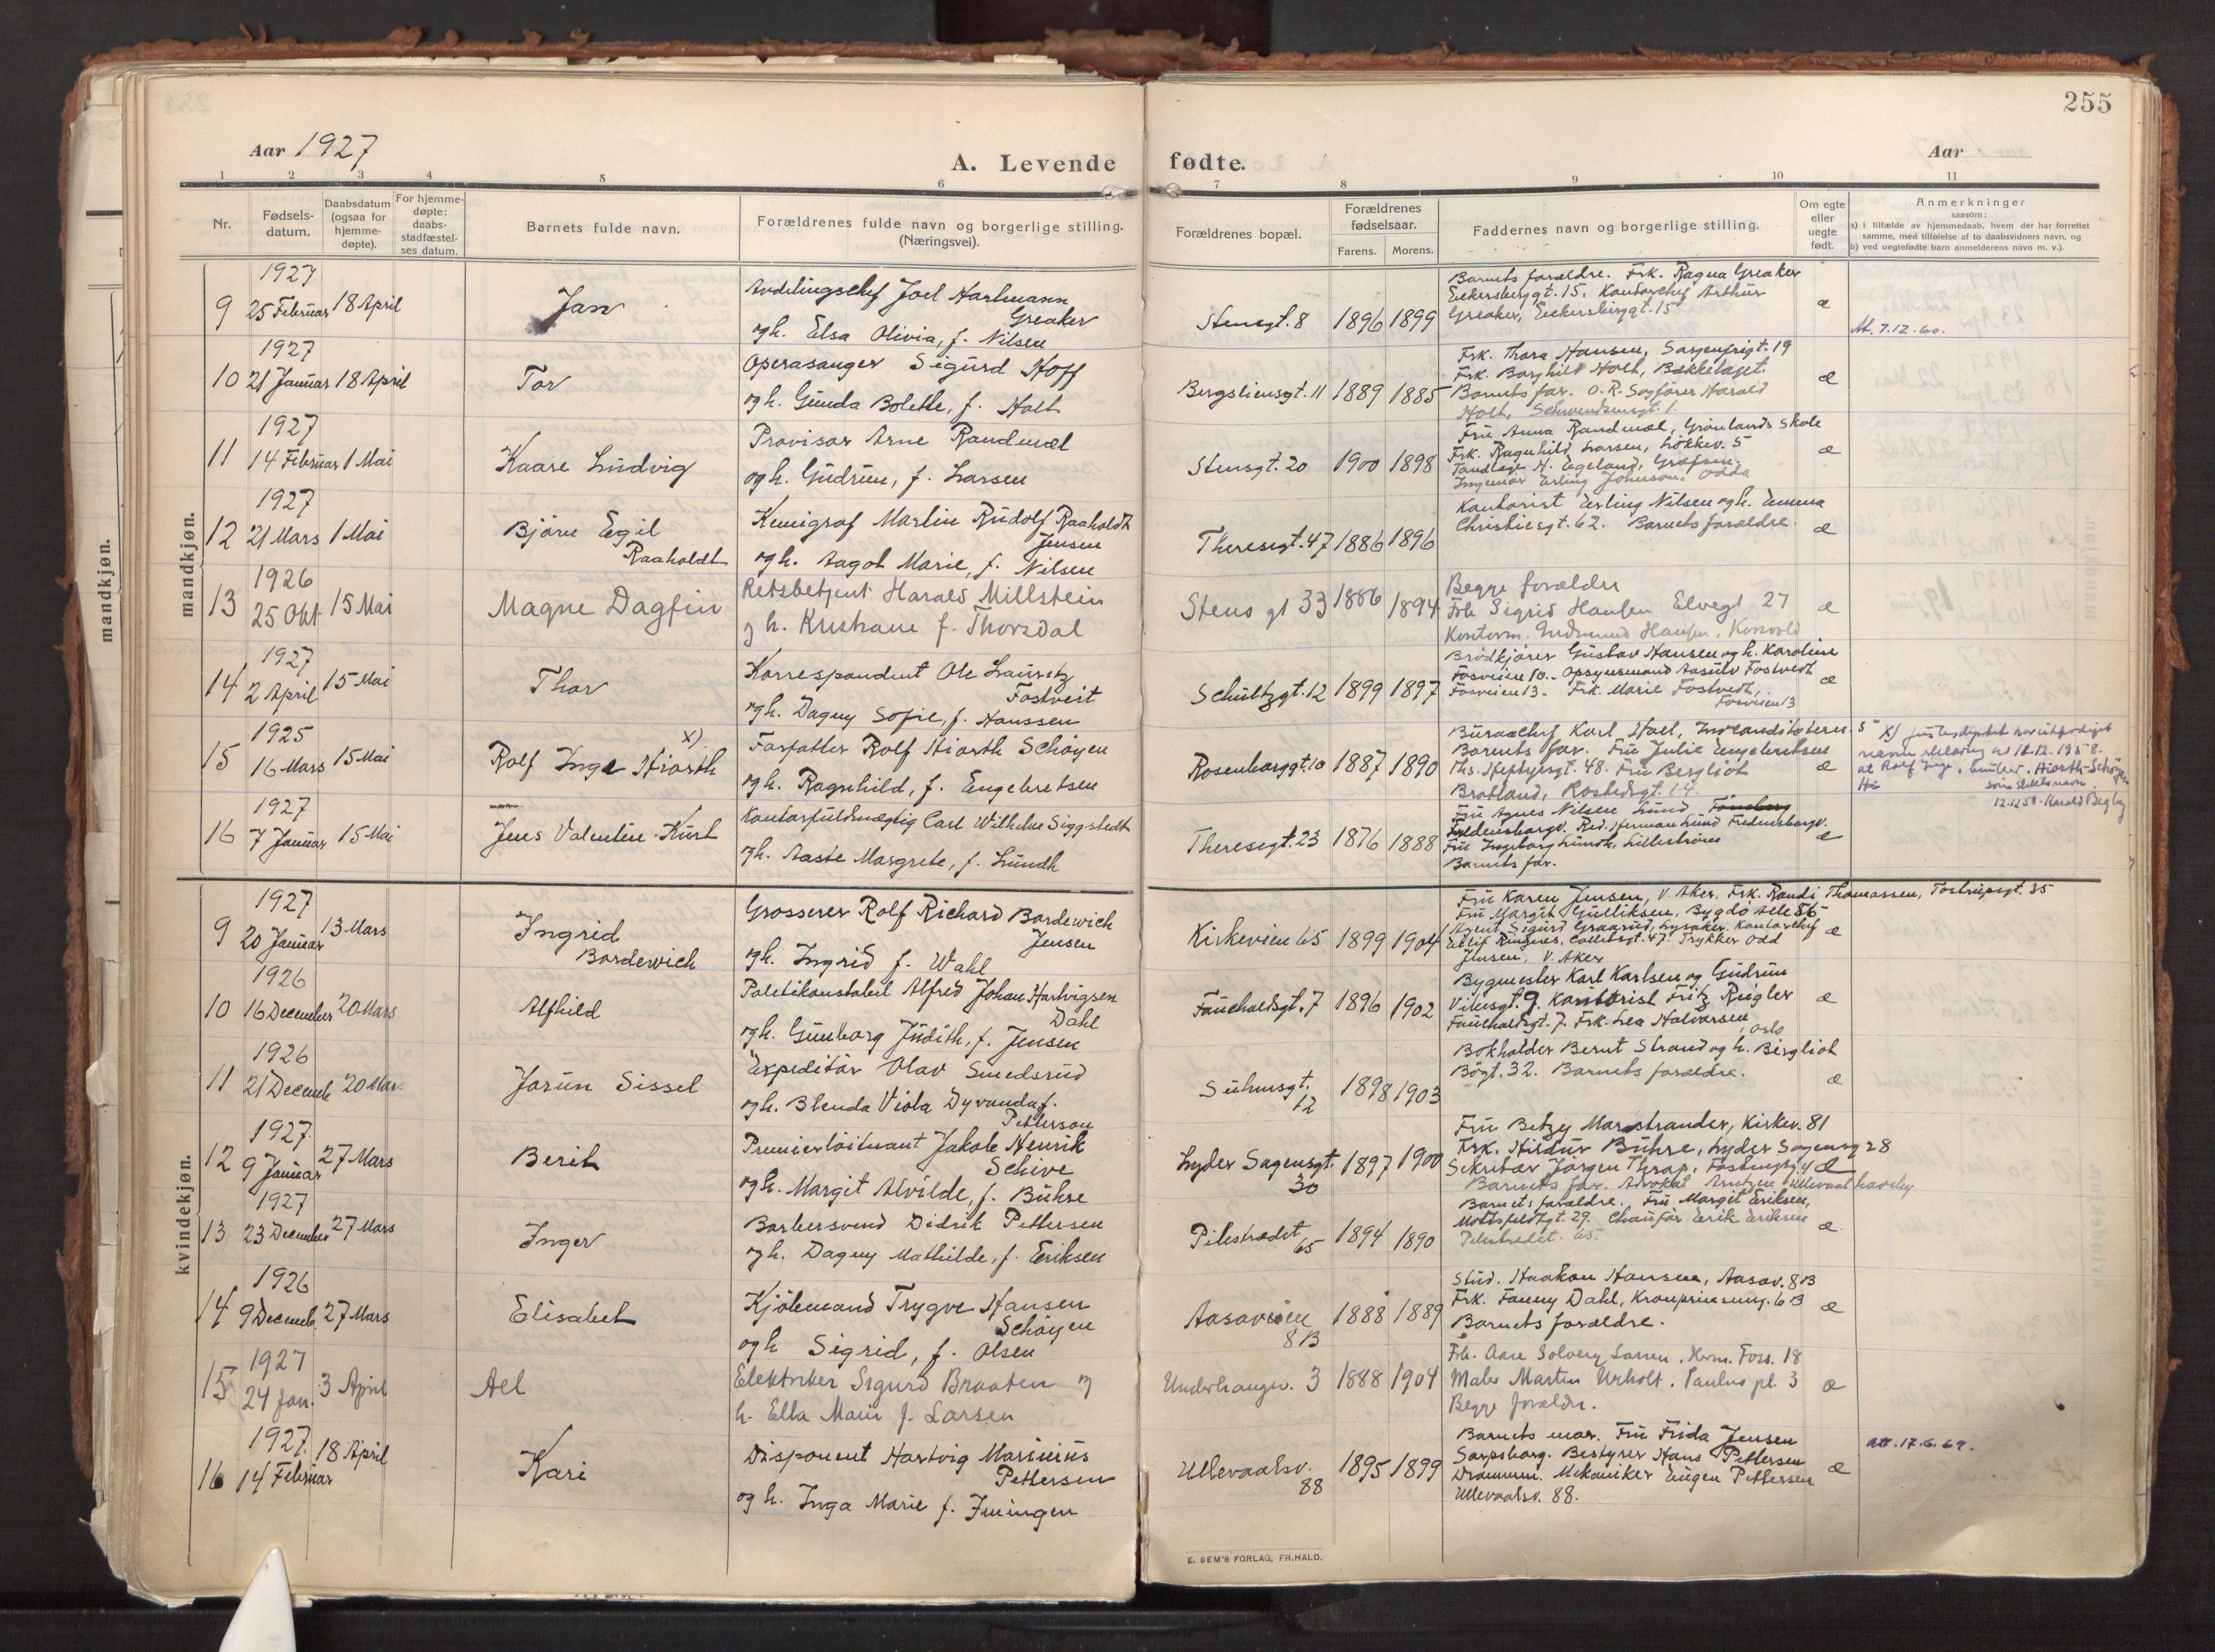 255
Aar 1927
A. Levende fødte.
Aar
1 2 3 4 5 6 7 8 9 10 11
Nr.
Fødsels-
datum.
Daabsdatum
(ogsaa for
hjemme-
døpte).
For hjemme-
døpte:
daabs-
stadfæstel-
ses datum.
Barnets fulde navn.
Forældrenes fulde navn og borgerlige stilling.
(Næringsvei).
Forældrenes bopæl.
Forældrenes
fødselsaar.
Farens. Morens.
Faddernes navn og borgerlige stilling.
Om egte
eller
uegte
født.
Anmerkninger
saasom:
a) i tilfælde av hjemmedaab, hvem der har forrettet
samme, med tilføielse af to daabsvidners navn, og
b) ved uegtefødte barn anmelderens navn m. v.).
mandkjøn.
mandkjøn.
1927
9 25 Februar 18 April
Jan
Avdelingschef Joel Hartmann
Greaker
og h. Elsa Olivia, f. Nilsen
Stensgt. 8 1896 1899
Barnets forældre. Frk. Ragna Greaker
Eckersberggt. 15. Kontorchef Arthur
Greaker, Eckersberggt. 15
æ
Att. 7.12.60.
1927
10 21 Januar 18 April
Tor
Operasanger Sigurd Hoff
og h. Gunda Bolette, f. Holt
Bergsliensgt. 11 1889 1885
Frk. Thora Hansen, Sorgenfrigt. 19
Frk. Borghild Holt, Bækkelaget.
Barnets far. O.R. Sagfører Harald
Holt, Schwendsensgt. 1.
æ
1927
11 14 Februar 1 Mai
Kaare Ludvig
Provisor Arne Randmæl
og h. Gudrun, f. Larsen
Stensgt. 20 1900 1898
Fru Anna Randmæl, Grønlands Skole
Frk. Ragnhild Larsen, Løkkev. 5
Tandlæge H. Egeland, Grefsen.
Ingeniør Erling Johnson, Odda
æ
1927
12 21 Mars 1 Mai
Bjørn Egil
Raaholdt
Kemigraf Martin Rudolf Raaholdt
Jensen
og h. Aagot Marie, f. Nilsen
Theresegt. 47 1886 1896
Kontorist Erling Nilsen og h. Emma
Christiesgt. 62. Barnets forældre.
æ
1926
13 25 Okt 15 Mai
Magne Dagfin
Retsbetjent Harald Millstein
og h. Kristiane f. Thorsdal
Stens gt 33 1886 1894
Begge forældre
Frk Sigrid Hansen Elvegt 27
Kontorm. Gudmund Hansen,
æ
1927
14 2 April 15 Mai
Thor
Korrespondent Ole Lauritz
Fostveit
og h. Dagny Sofie, f. Hanssen
Schultzgt. 12 1899 1897
Brødkjører Gustav Hansen og h. Karoline
Fosveien 10. Opsynsmand Aasulv Fostvedt
Fosveien 13. Frk. Marie Fostvedt,
Fosveien 13
æ
1925
15 16 Mars 15 Mai
x)
Rolf Inge Hiorth
Forfatter Rolf Hiorth Schøyen
og h. Ragnhild, f. Engebretsen
Rosenborggt. 10 1887 1890
Bureauchef Karl Hoel,
Barnets far. Fru Julie Engebretsen
Ths. Heftyesgt. 48. Fru Bergliot
Bratland, Rostedsgt. 14.
æ
x) Justisdeptet har utferdiget
navn erklæring av 12.12.1958.
at Rolf Inge, bruker Hiorth-Schøyen
som slektsnavn
12.12.58. Harald Begby
1927
16 7 Januar 15 Mai
Jens Valentin Kurt
Kontorfuldmægtig Carl Wilhelm Siggstedt
og h. Aaste Margrete, f. Lundh
Theresegt. 23 1876 1888
Fru Agnes Nilsen Lund,
Fredensborgv. Red. Herman Lund Fredensborgv.
Fru Ingeborg Lundh, Lillestrøm
Barnets far.
æ
kvindekjøn.
1927
9 20 Januar 13 Mars
Ingrid
Bordewich
Grosserer Rolf Richard Bordewich
Jensen
og h. Ingrid f. Wahl
Kirkeveien 65 1899 1904
Fru Karen Jensen, V. Aker. Frk. Randi Thomassen, Tostrupsgt. 35
Fru Margit Gulliksen, Bygdø Alle 56
Agent Sigurd Graarud, Lysaker. Kontorchef
Leif Ringnes, Colletsgt. 47. Trykker Odd
Jensen, V. Aker
æ
1926
10 16 December 20 Mars
Alfhild
Politikonstabel Alfred Johan Hartvigsen
Dahl
og h. Gunborg Judith, f. Jensen
Fauchaldsgt. 7 1896 1902
Bygmester Karl Karlsen og Gudrun
Vibesgt. 9. Kontorist Fritz Riegler
Fauchaldsgt. 7. Frk. Lea Halvorsen,
Oslo
æ
1926
11 21 Decemb 20 Mars
Jorun Sissel
Expeditør Olav Smedsrud
og h. Blenda Viola Dyvanda f.
Petterson
Suhmsgt.
12
1898 1903
Bokholder Bernt Strand og h. Bergliot
Bøgt. 32. Barnets forældre.
æ
1927
12 9 Januar 27 Mars
Berit
Premierløitnant Jakob Henrik
Schive
og h. Margit Alvilde, f. Bühre
Lyder Sagensgt.
30
1897 1900
Fru Betzy Marstrander, Kirkev. 81
Frk. Hildur Bühre, Lyder Sagensg 28
Sekretær Jørgen Thrap,
Barnets far. Advokat Arntzen Ullevaal haveby
æ
1927
13 23 December 27 Mars
Inger
Barbersvend Didrik Pettersen
og h. Dagny Mathilde, f. Eriksen
Pilestrædet
65
1894 1890
Barnets forældre. Fru Margit Eriksen,
Motzfeldtsgt. 29. Chauffør Erik Eriksen
Pilestrædet. 65.
æ
1926
14 9 Decemb. 27 Mars
Elisabet
Kjøbmand Trygve Hansen
Schøyen
og h Sigrid, f. Olsen
Aasaveien
8B
1888 1889
Stud. Haakon Hansen, Aasav. 8B
Frk. Fanny Dahl, Kronprinsensg. 6B
Barnets forældre.
æ
1927
15 24 Jan. 3 April
Ael
Elektriker Sigurd Braaten og
h. Ella Marie f. Larsen
Underhaugsv. 3 1888 1904
Frk. Aase Solveig Larsen. Herm. Foss. 18
Maler Martin Urholt. Paulus pl. 3
Begge forældre.
æ
1927
16 14 Februar 18 April
Kari
Disponent Hartvig Marinius
Pettersen
og h. Inga Marie f. Iningen
Ullevaalsv.
88
1895 1899
Barnets mor. Fru Frida Jensen
Sarpsborg. Bestyrer Hans Pettersen
Drammen. Mekaniker Eugen Pettersen
Ullevaalsv. 88.
æ
att. 17.6.69.
E. SEM'S FORLAG, FR.HALD.